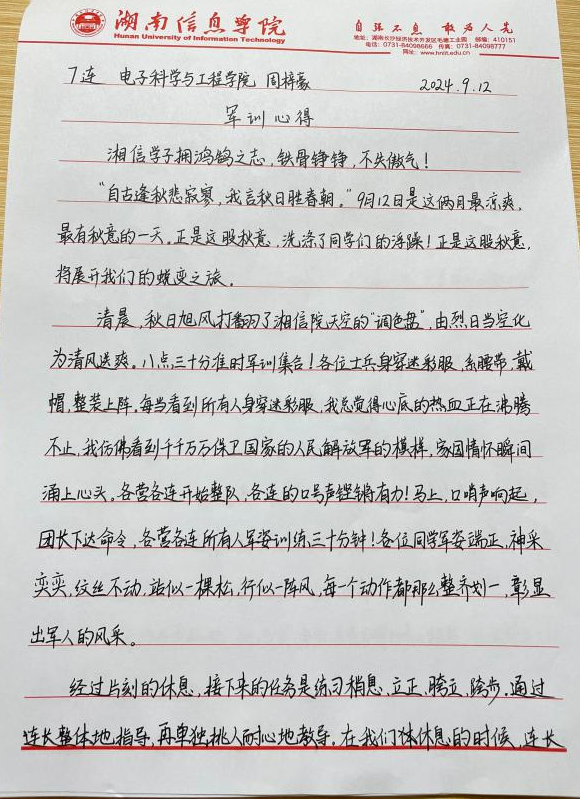 湖南信息学院
Hunan University of Information Technology
自强不息 敢为人先
地址：湖南长沙经济技术开发区毛塘工业园 邮编：410151
电话：0731-84098666 传真：0731-84098777
网址：www.hnuit.edu.cn
7连 电子科学与工程学院 周梓豪 2024.9.12
军训心得
湘信学子拥鸿鹄之志，铁骨铮铮，不失傲气！
“自古逢秋悲寂寥，我言秋日胜春朝。”9月12日是这俩月最凉爽，
最有秋意的一天。正是这股秋意，洗涤了同学们的浮躁！正是这股秋意，
将展开我们的蜕变之旅。
清晨，秋日旭风打翻了湘信院天空的“调色盘”，由烈日当空化
为清风送爽。八点三十分准时军训集合！各位士兵身穿迷彩服，系腰带，戴
帽，整装上阵。每当看到所有人身穿迷彩服，我总觉得心底的热血正在沸腾
不止，我仿佛看到千千万万保卫国家的人民解放军的模样，家国情怀瞬间
涌上心头。各营各连开始整队，各连的口号声铿锵有力！马上，口哨声响起，
团长下达命令，各营各连所有人军姿训练三十分钟！各位同学军姿端正，神采
奕奕，纹丝不动，站似一棵松，行似一阵风，每一个动作都那么整齐划一，彰显
出军人的风采。
经过片刻的休息，接下来的任务是练习稍息，立正，跨立，跨步。通过
连长整体地指导，再单独挑人耐心地教导。在我们休息的时候，连长